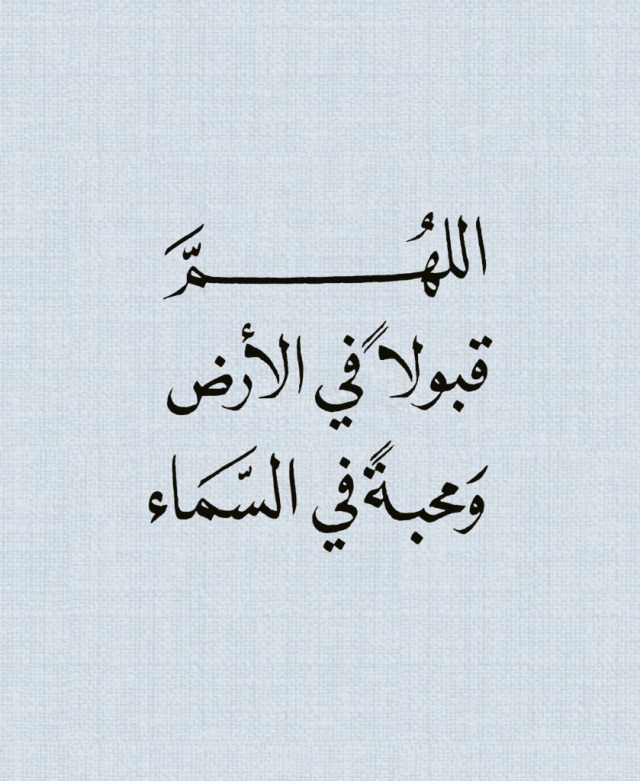 اللهُمَّ
قبولاً في الأرض
وَمحبةً في السَّمَاء